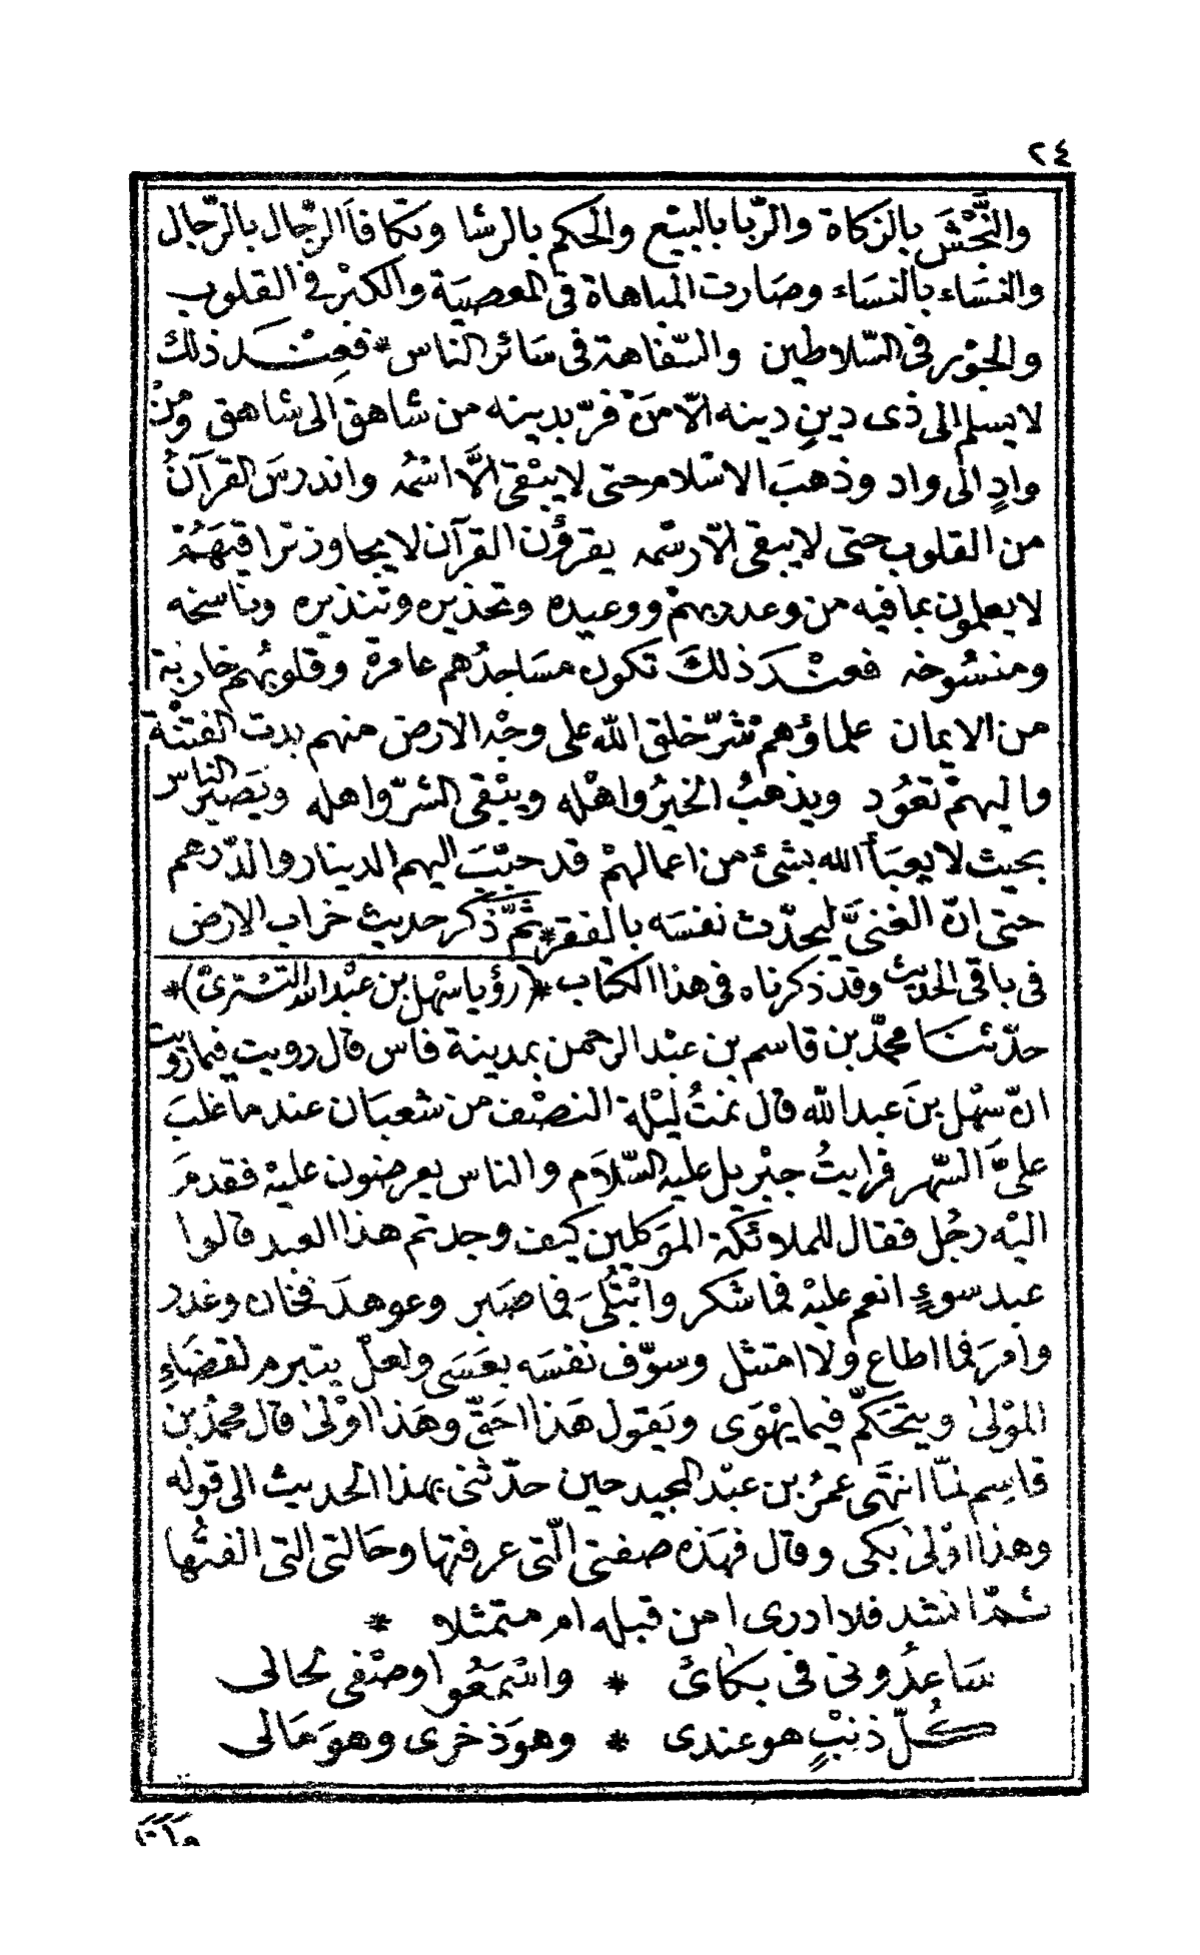 ٢٤
والنَّجْشَ بالزكاة والرّبا بالبيْع والحكم بالرشا وتكافأ الرّجال بالرّجال
والنسَاء بالنسَاء وصَارت المباهاة فى المعصيَة والكبْر فى القلوب
والجوْر فى السّلاطين والسّفاهة فى سَائر الناس * فعِنْد ذلك
لا يسلم الى ذى دينٍ دينه الّا منْ فرّ بدينه من شاهق الى شاهق ومنْ
وادٍ الى واد وذهبَ الاسْلام حتى لا يبْقى الَّا اسْمُه واندرسَ القرآنُ
من القلوب حتى لا يبقى الّا رسْمه يقرؤن القرآن لا يجاوز تراقيَهُمْ
لا يعلمون بما فيه من وعد ربهمْ ووعيده وتحذيره وتنذيره وناسخه
ومنسُوخه فعنْد ذلكَ تكون مسَاجدُهم عامرة وقلوبُهم خاربة
من الايمان علماؤهم شرّ خلق الله على وجْه الارض منهم بدت الفتنْة
واليهمْ تعُود ويذهبُ الخيرُ واهْله ويبْقى الشرّ واهله ويَصير الناس
بحيث لا يعبَأ الله بشئ من اعمالهمْ قد حبّبَ اليهم الدينار والدّرهم
حتى انّ الغنىَّ ليحدّث نفسَه بالفقر * ثمَّ ذكر حديث خراب الارض
فى باقى الحديث وقد ذكرناه فى هذا الكتاب * (رؤيا سهْل بن عبْد الله التسْترىّ) *
حدّثنَا محمّد بن قاسم بن عبْد الرحمن بمدينة فاس قال رويت فيما رويت
انّ سهْل بنَ عبد الله قال نمْتُ ليْلة النصْف من شعبَان عند ما غلبَ
علىَّ السّهر فرايتُ جبْريل عليه السّلام والناس يعرضون عليْه فقدمَ
اليْه رجُل فقال للملائكة الموَكلين كيْف وجدتم هذا العبد قالوا
عبد سوءٍ انعم عليْه فما شكر وابْتُلىَ فما صَبر وعوهدَ فخان وغدر
وامرَ فما اطاع ولا امتثل وسوّف نفسَه بعَسَى ولعلّ يتبرم لقضَاءِ
الموْلى ويتحَكّم فيما يهْوَى ويَقول هَذا احَقّ وهَذا اوْلى قال محمّد بن
قاسِم لمّا انتهَى عمرُ بن عبْد المجيد حين حدّثنى بهذا الحديث الى قوله
وهذا اوْلى بكى وقال فهَذه صفتى الّتى عرفتها وحَالتى التى الفتُها
ثمّ انشد فلا ادرى امن قبله ام متمثلا *
سَاعدُونى فى بكائ * واسْمَعُوا وصْفى لحالى
كُلّ ذنبٍ هو عندى * وهوَ ذخرى وهوَ مَالى